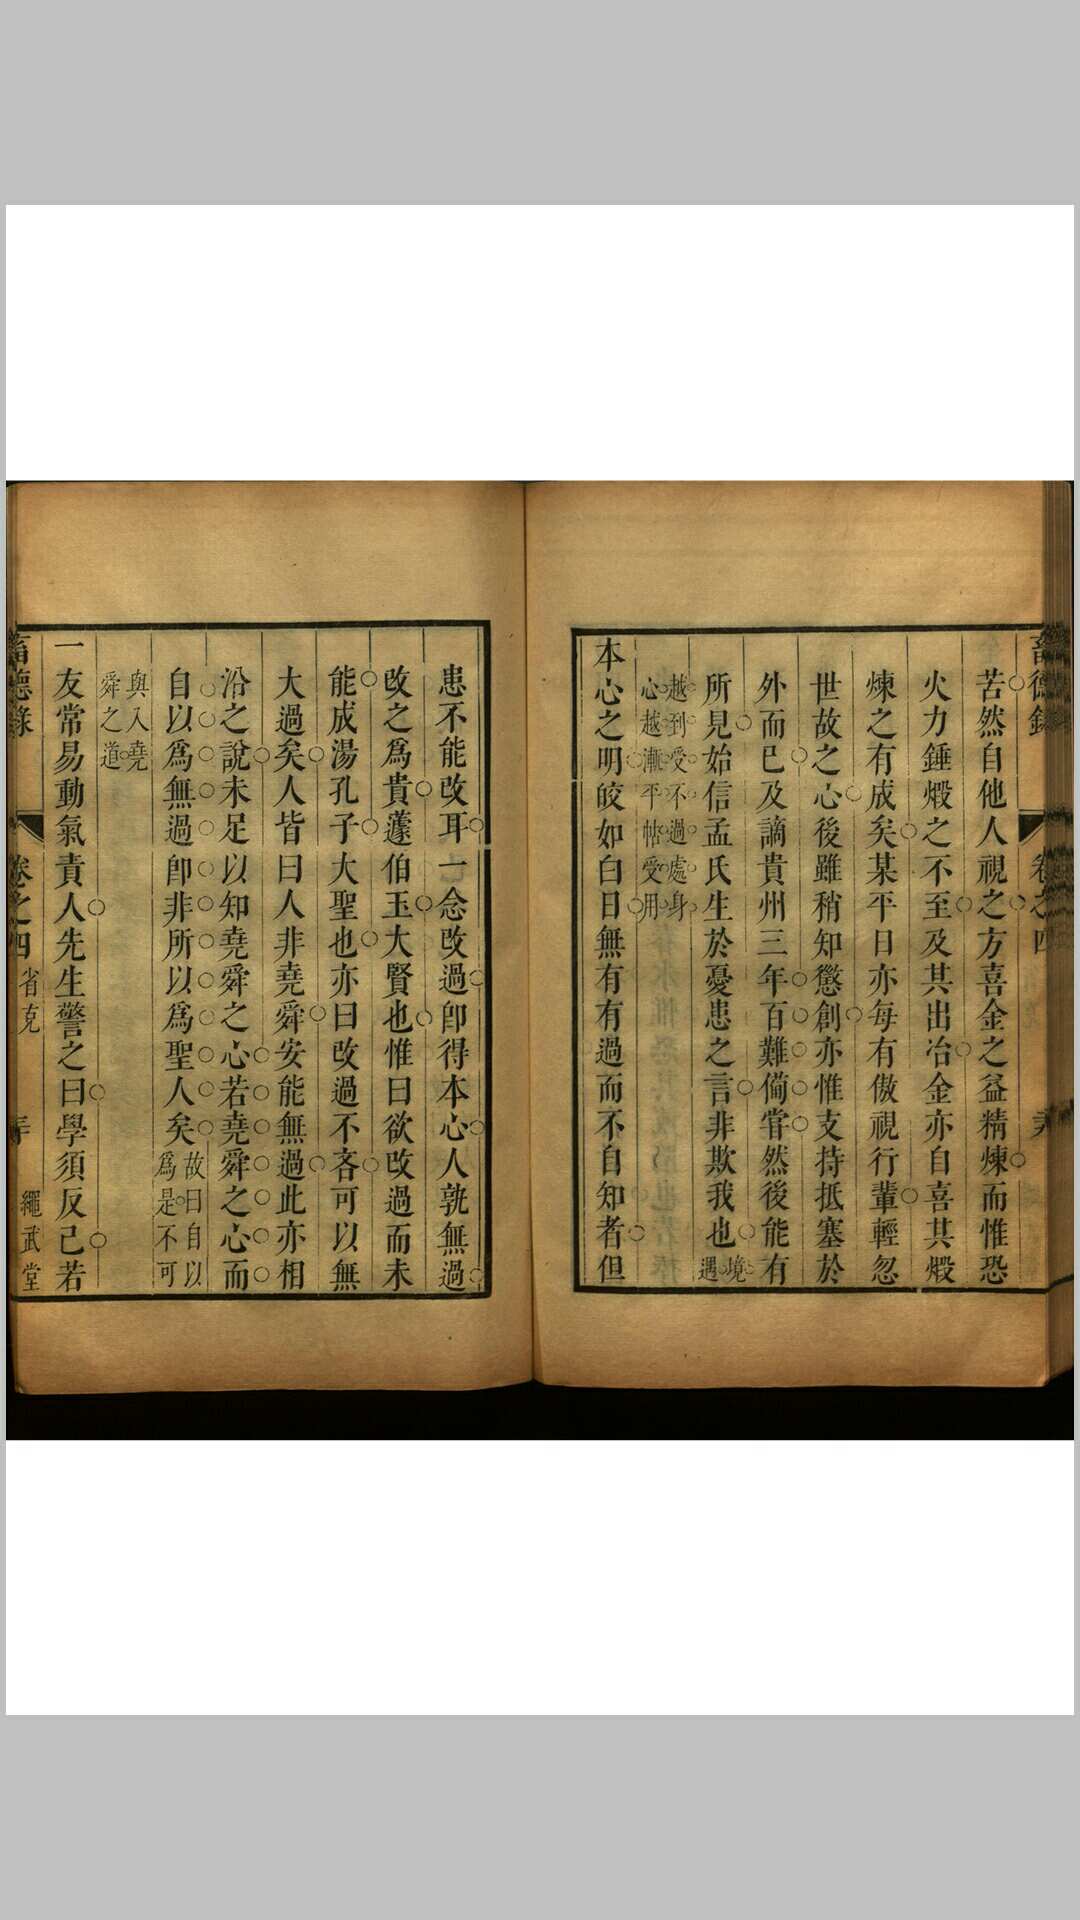 畜德錄
卷之四
苦然自他人視之方喜金之益精煉而惟恐
火力錘煅之不至及其出冶金亦自喜其煅
煉之有成矣某平日亦每有傲視行輩輕忽
世故之心後雖稍知懲創亦惟支持抵塞於
外而已及謫貴州三年百難備嘗然後能有
所見始信孟氏生於憂患之言非欺我也境遇
越到受不過處身
心越漸平帖受用
本心之明皎如白日無有有過而不自知者但
患不能改耳一念改過卽得本心人孰無過
改之爲貴蘧伯玉大賢也惟曰欲改過而未
能成湯孔子大聖也亦曰改過不吝可以無
大過矣人皆曰人非堯舜安能無過此亦相
沿之說未足以知堯舜之心若堯舜之心而
自以爲無過卽非所以爲聖人矣故曰自以爲是不可
與入堯
舜之道
一友常易動氣責人先生警之曰學須反己若
畜德錄
卷之四
省克
繩武堂